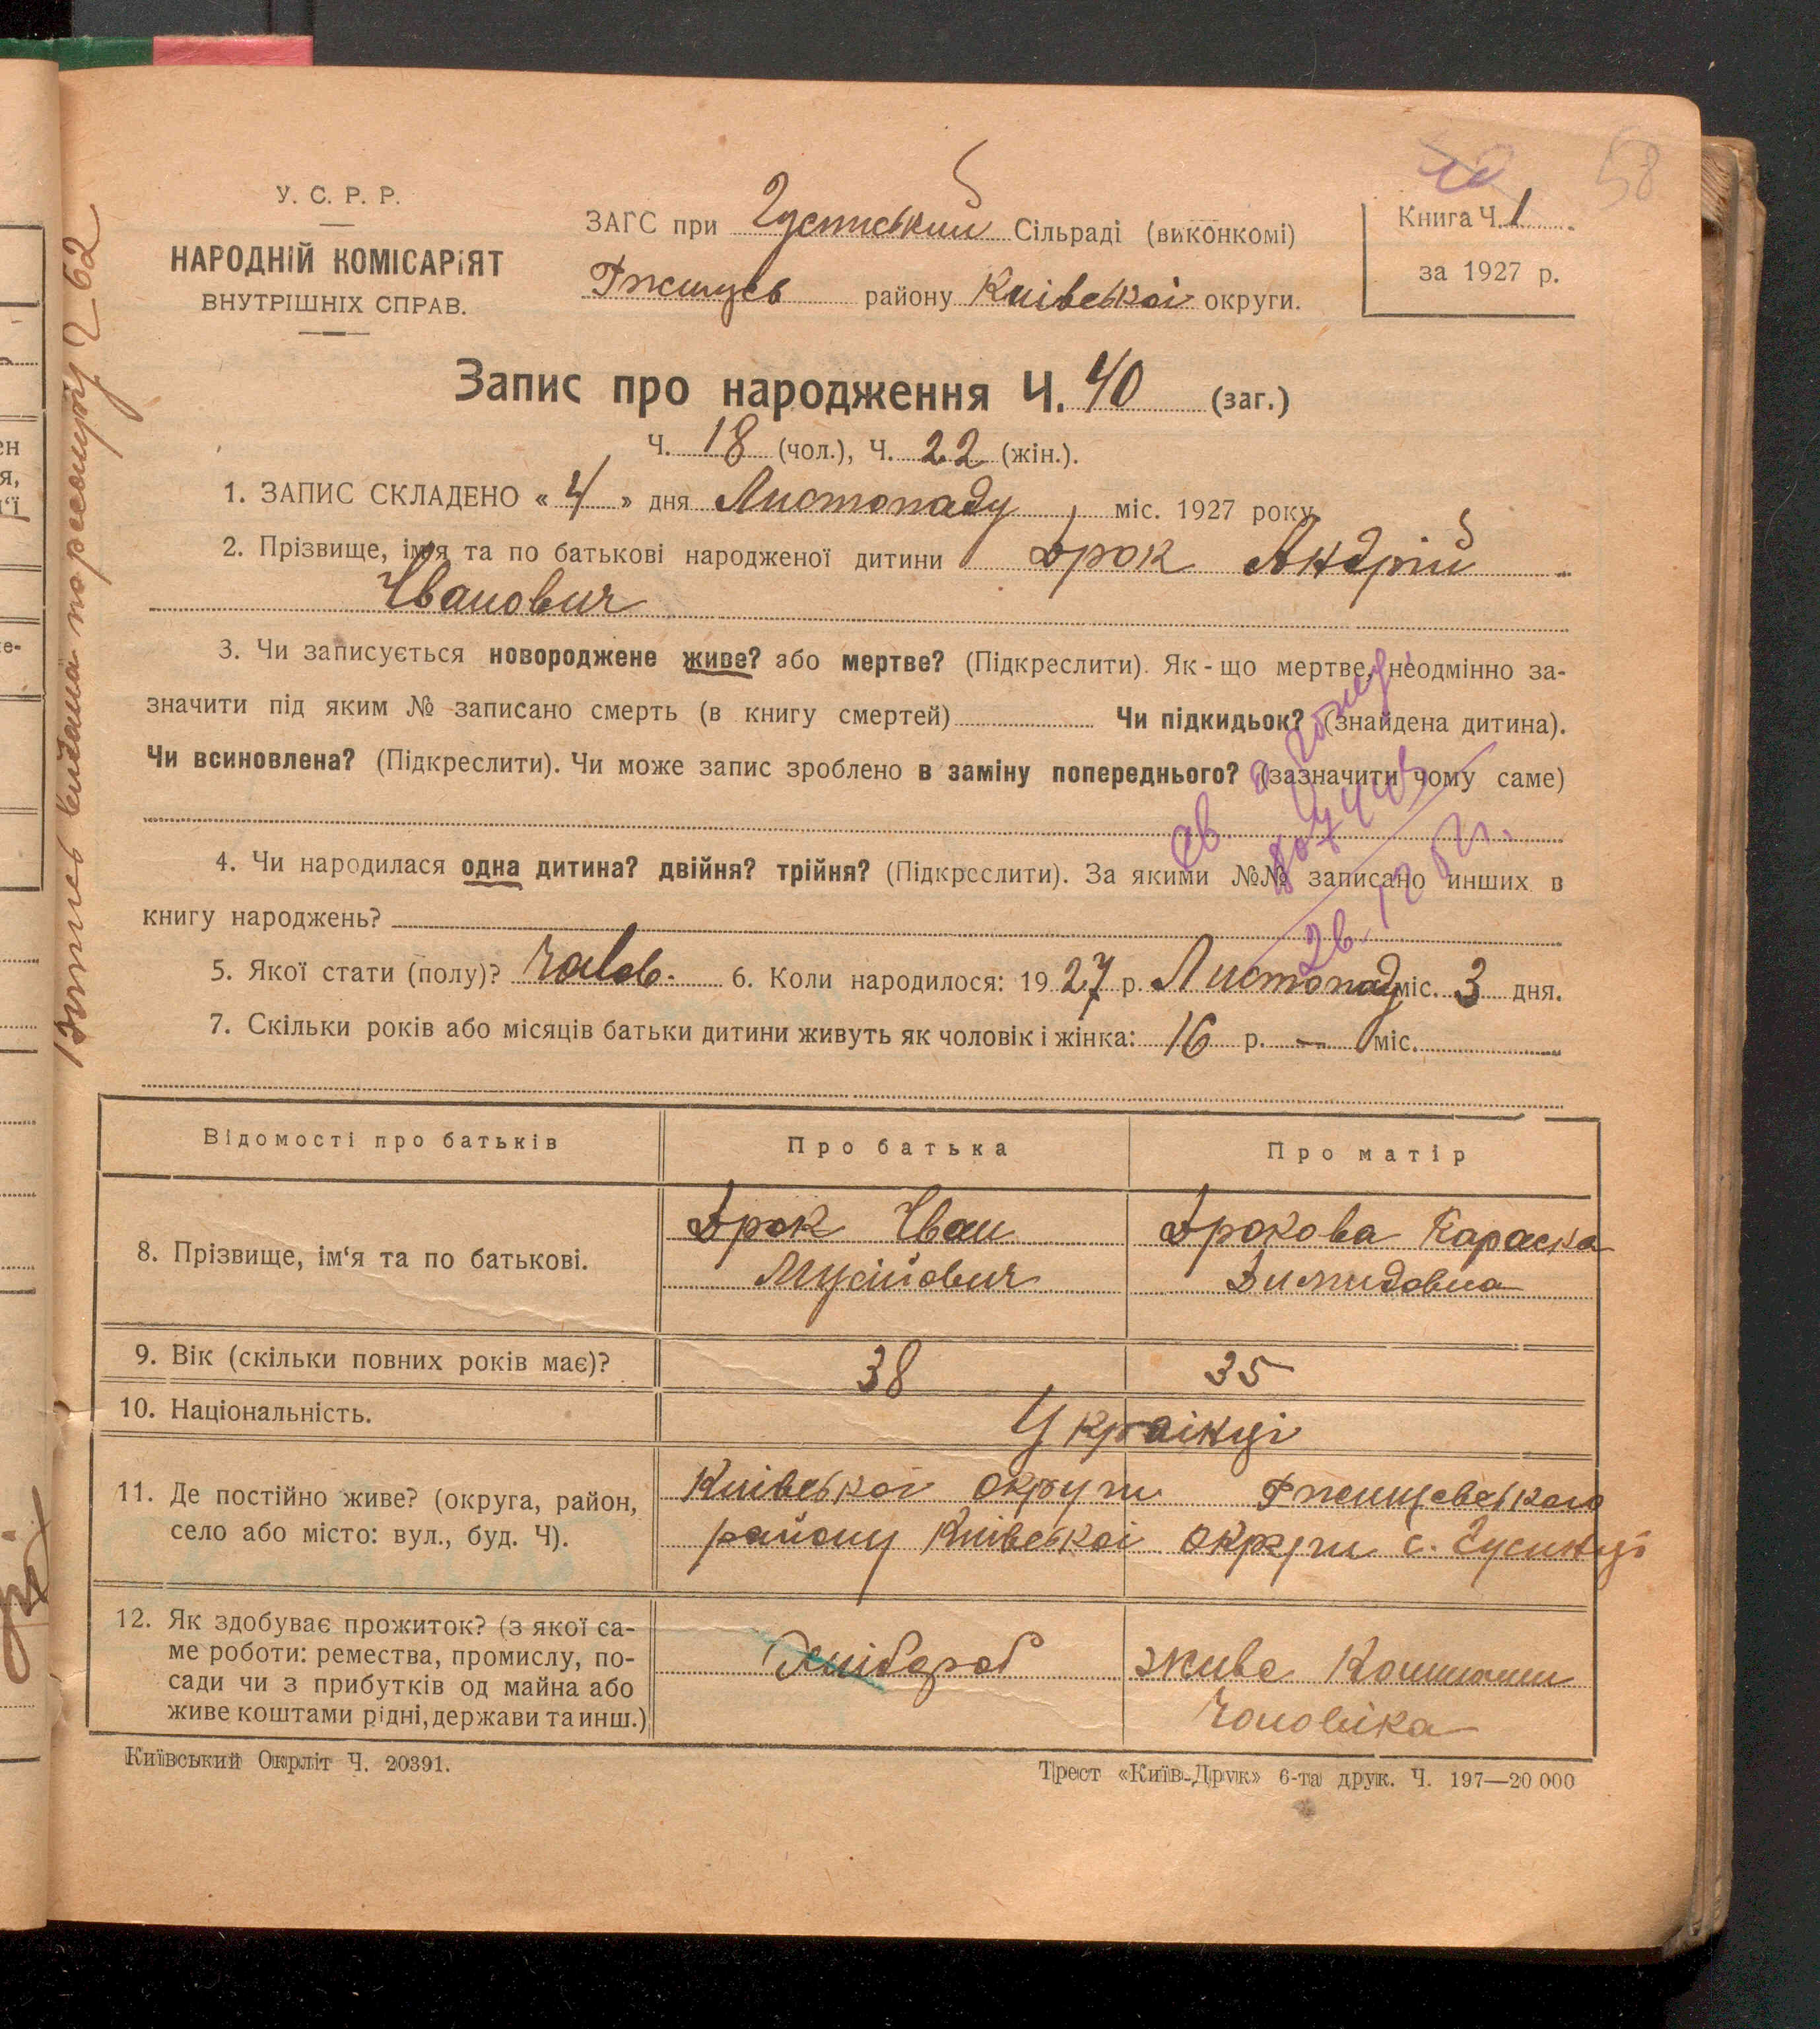 58
У. С. Р. Р.
НАРОДНІЙ КОМІСАРІЯТ
ВНУТРІШНІХ СПРАВ.
ЗАГС при Сільраді (виконкомі)
району Київської округи.
Книга Ч. 1
за 1927 р.
Запис про народження Ч. 40 (заг.)
Ч. 18 (чол.), Ч. 22 (жін.).
1. ЗАПИС СКЛАДЕНО « 4 » дня Листопаду міс. 1927 року
2. Прізвище, ім'я та по батькові народженої дитини Дрок Андрій
Іванович
3. Чи записується новороджене живе? або мертве? (Підкреслити). Як-що мертве, неодмінно за-
значити під яким № записано смерть (в книгу смертей) Чи підкидьок? (знайдена дитина).
Чи всиновлена? (Підкреслити). Чи може запис зроблено в заміну попереднього? (зазначити чому саме)
4. Чи народилася одна дитина? двійня? трійня? (Підкреслити). За якими №№ записано инших в
книгу народжень?
5. Якої стати (полу)? 6. Коли народилося: 1927 р. Листопаду міс. 3 дня.
7. Скільки років або місяців батьки дитини живуть як чоловік і жінка: 16 р. — міс.
Відомості про батьків Про батька Про матір
8. Прізвище, ім‘я та по батькові.
Дрок Іван
Мусійович
Дрокова Параска
9. Вік (скільки повних років має)? 38 35
10. Національність. Українці
11. Де постійно живе? (округа, район,
село або місто: вул., буд. Ч).
Київської округи
району Київської округи с.
12. Як здобуває прожиток? (з якої са-
ме роботи: ремества, промислу, по-
сади чи з прибутків од майна або
живе коштами рідні, держави та инш.)
Хлібороб
живе Коштами
Чоловіка
Київський Окрліт Ч. 20391.
Трест «Київ-Друк» 6-та друк. Ч. 197—20 000